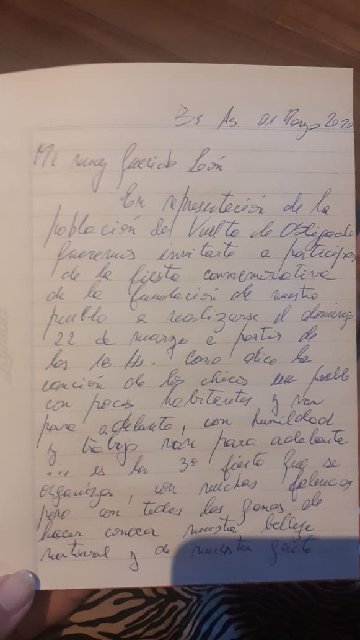 Bs As. 01 Marzo 2020
Mi muy Querido León
En representación de la
población del Vuelta de Obligado
queremos invitarte a participar
de la fiesta conmemorativa
de la fundación de nuestro
pueblo a realizarse el domingo
22 de marzo a partir de
las 18 H. Como dice la
canción de los chicos un pueblo
con pocos habitantes y van
para adelante, con humildad
y trabajo van para adelante
... es la 3º fiesta que se
organiza, con muchas falencias
pero con todas las ganas de
hacer conocer nuestra belleza
natural y de nuestra gente.